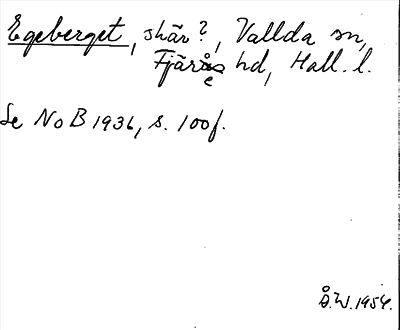 Egeberget, skär?, Vallda sn,
Fjäre hd, Hall. l.
Se NoB 1936, s. 100f.
Å.W. 1954.